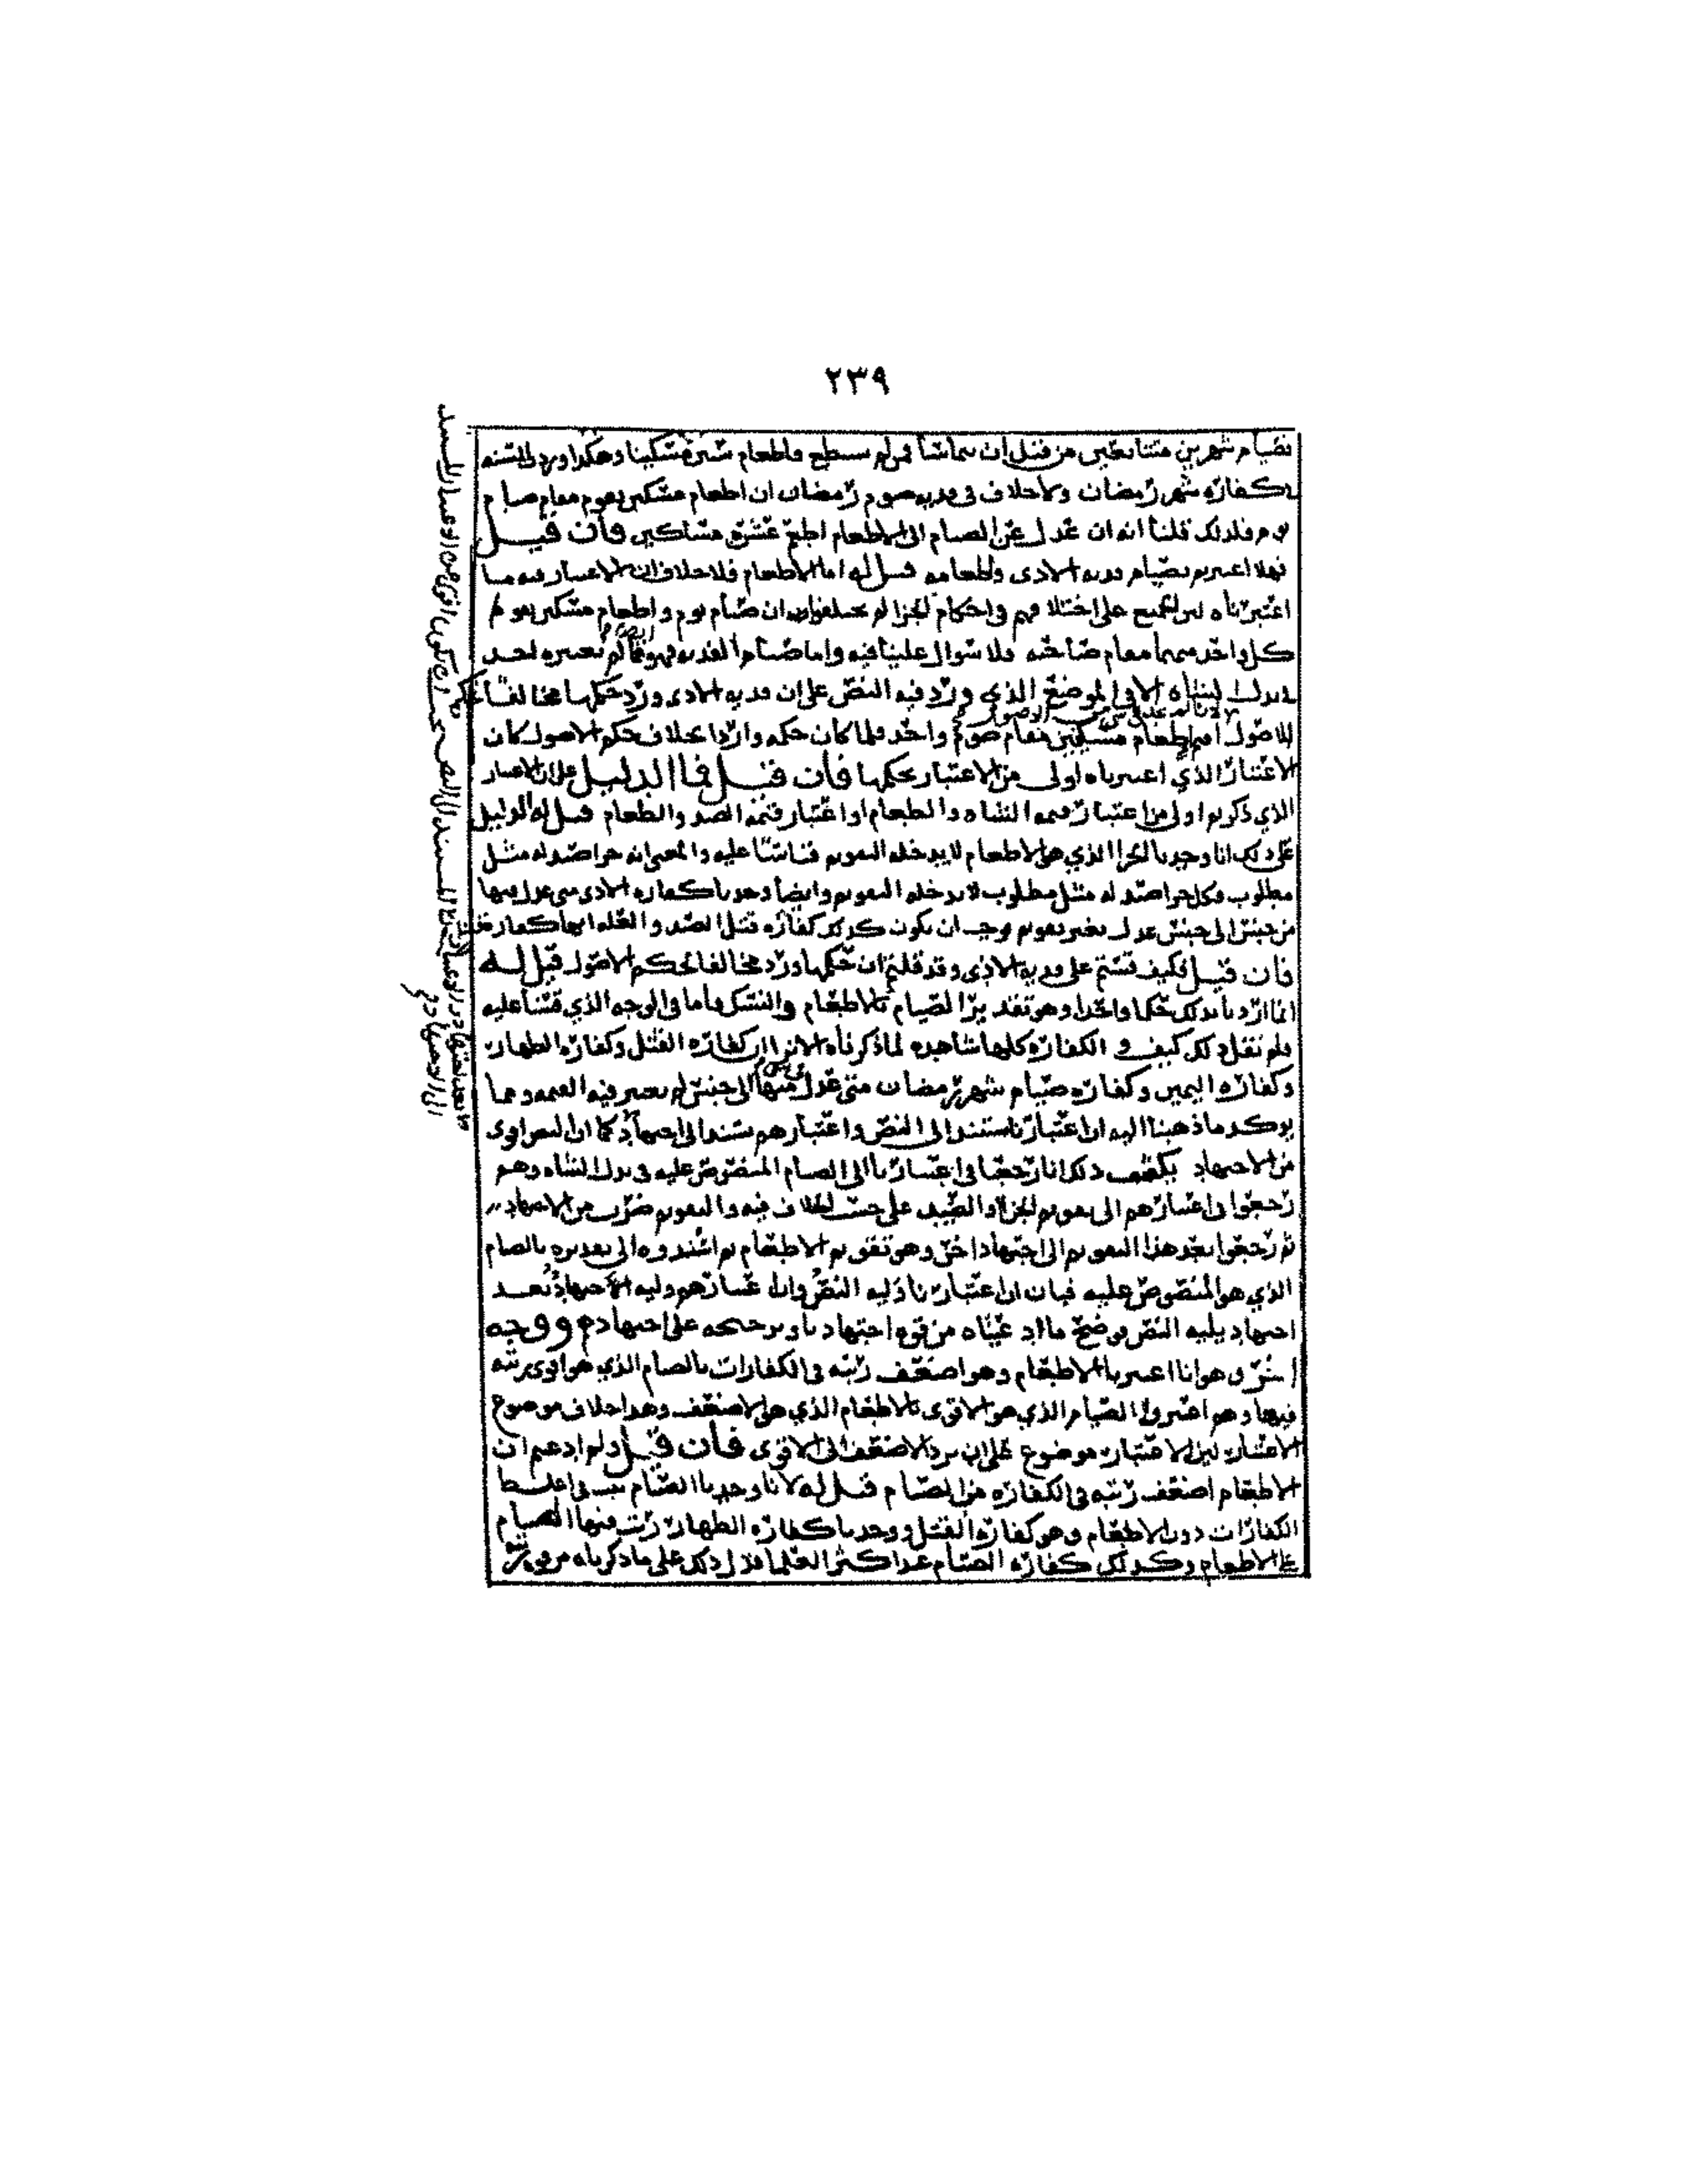 ٢٣٩
فصيام شهرين متتابعين من قبل ان يتماسا فمن لم يستطع فاطعام ستين مسكينا وهكذا ورد في السنه
كفارة شهر رمضان ولا خلاف في فديه صوم رمضان ان اطعام مسكين يقوم مقام صيام
يوم فلذلك قلنا انه ان عدل عن الصيام الى الاطعام اطعم عشرة مساكين فان قيل
فهلا اعتبرتم بصيام فديه الاذى واطعامه قيل له اما الاطعام فلا خلاف ان الاعتبار فيه بما
اعتبرناه لان الجميع على اختلافهم في احكام الجزا لم يختلفوا في ان صيام يوم واطعام مسكين يقوم
كل واحد منهما مقام صاحبه فلا سوال علينا فيه واما صيام الفديه فهو مما لم يعتبره احد
في بدل الشاه الا في الموضع الذي ورد فيه النص على ان فديه الاذى ورد حكمها مخالفا
للاصول اطعام مسكينين مقام صوم واحد فلما كان حكمه واردا بخلاف حكم الاصول كان
الاعتبار الذي اعتبرناه اولى من الاعتبار بحكمها فان قيل فما الدليل على ان الاعتبار
الذي ذكرتم اولى من اعتبار قيمه الشاه والطعام او اعتبار قيمه الصيد والطعام قيل له الدليل
على ذلك انا وجدنا الجزا الذي هو الاطعام لا يدخله التقويم قياسا عليه والمعنى انه جزا صيد له مثل
مطلوب وكل جزا صيد له مثل مطلوب لا يدخله التقويم وايضا وجدنا كفاره الاذى متى عدل فيها
من جنس الى جنس عدل بغير تقويم فوجب ان يكون كذلك كفاره قتل الصيد والعله انها كفاره
فان قيل فكيف قستم على فديه الاذى وقد قلتم ان حكمها ورد مخالفا لحكم الاصول قيل له
انما اردنا بذلك حكما واحدا وهو تقدير الصيام بالاطعام والنسك فاما في الوجه الذي قسنا عليه
فلم نقل ذلك كيف والكفاره كلها شاهده لما ذكرناه الا ترى ان كفاره القتل وكفاره الظهار
وكفاره اليمين وكفاره صيام شهر رمضان متى عدل منها الى جنس لم يعتبر فيه القيمه ومما
يوكد ما ذهبنا اليه ان اعتبارنا استند الى النص واعتبارهم يستند الى اجتهاد كما ان النص اقوى
من الاجتهاد يكشف ذلك انا رجعنا في اعتبارنا الى الصيام المنصوص عليه في بدل الشاه وهم
رجعوا في اعتبارهم الى تقويم الجزا او الصيد على حسب الخلاف فيه والتقويم ضرب من الاجتهاد
ثم رجعوا بعد هذا التقويم الى اجتهاد اخر وهو تقويم الاطعام ثم اسندوه الى تقديره بالصيام
الذي هو المنصوص عليه فبان ان اعتبارنا وليه النص وان اعتبارهم وليه الاجتهاد بعد
اجتهاد يليه النص فوضح ما ادعيناه من قوه اجتهادنا وترجيحه على اجتهادهم ووجه
اخر وهو انا اعتبرنا الاطعام وهو اضعف رتبه في الكفارات بالصيام الذي هو اقوى رتبه
فيها وهم اعتبروا الصيام الذي هو الاقوى بالاطعام الذي هو الاضعف وهذا خلاف موضوع
الاعتبار لان الاعتبار موضوع على ان يرد الاضعف الى الاقوى فان قيل ولم ادعيتم ان
الاطعام اضعف رتبه في الكفاره من الصيام قيل له لانا وجدنا الصيام يثبت في اغلظ
الكفارات دون الاطعام وهو كفاره القتل ووجدنا كفاره الظهار رتب فيها الصيام
على الاطعام وكذلك كفاره الصيام عند اكثر العلما فدل ذلك على ما ذكرناه من قوى رتبه